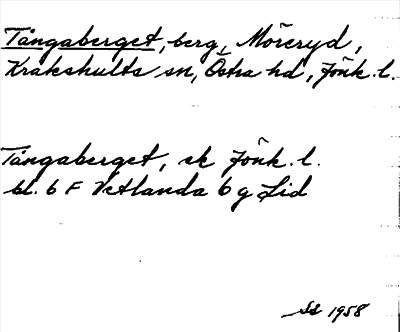 Tångaberget, berg, Möreryd,
Kråkshults sn, Östra hd, Jönk. l.
Tångaberget, ek Jönk. l.
bl. 6 F Vetlanda 6 g Lid
1958